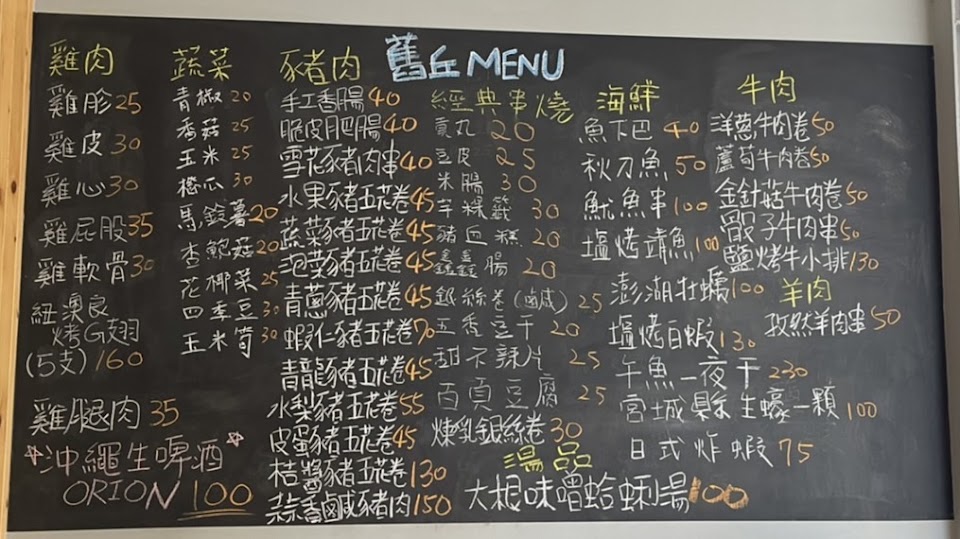 舊丘MENU
雞肉
雞胗25
雞皮30
雞心30
雞屁股35
雞軟骨30
紐澳良
烤G翅
(5支)160
雞腿肉35
☆沖繩生啤酒☆
ORION 100
蔬菜
青椒20
香菇25
玉米25
櫛瓜30
馬鈴薯20
杏鮑菇20
花椰菜25
四季豆30
玉米筍30
豬肉
手工香腸40
脆皮肥腸40
雪花豬肉串40
水果豬五花卷45
蔬菜豬五花卷45
泡菜豬五花卷45
青蔥豬五花卷45
蝦仁豬五花卷70
青龍豬五花卷45
水梨豬五花卷55
皮蛋豬五花卷45
桔醬豬五花卷130
蒜香鹹豬肉150
經典串燒
貢丸20
豆皮25
米腸30
芋粿籤30
豬血糕20
鑫鑫腸20
銀絲卷(鹹)25
五香豆干20
甜不辣片25
百頁豆腐25
煉乳銀絲卷30
湯品
大根味噌蛤蜊湯100
海鮮
魚下巴40
秋刀魚50
魷魚串100
塩烤鯖魚100
澎湖牡蠣100
塩烤白蝦130
午魚一夜干230
宮城縣生蠔一顆100
日式炸蝦75
牛肉
洋蔥牛肉卷50
蘆筍牛肉卷50
金針菇牛肉卷50
骰子牛肉串50
鹽烤牛小排130
羊肉
孜然羊肉串50